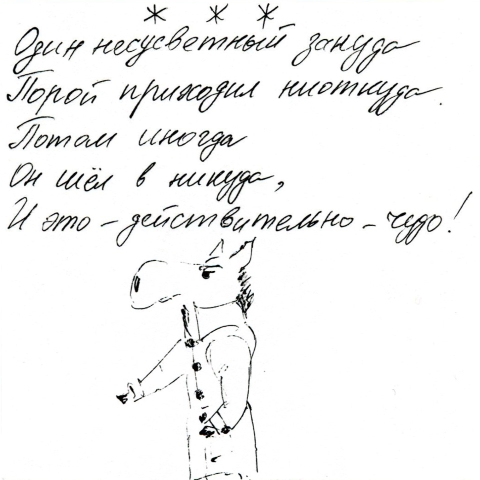 * * *
Один несусветный зануда
Порой приходил ниоткуда.
Потом иногда
Он шёл в никуда,
И это – действительно – чудо!